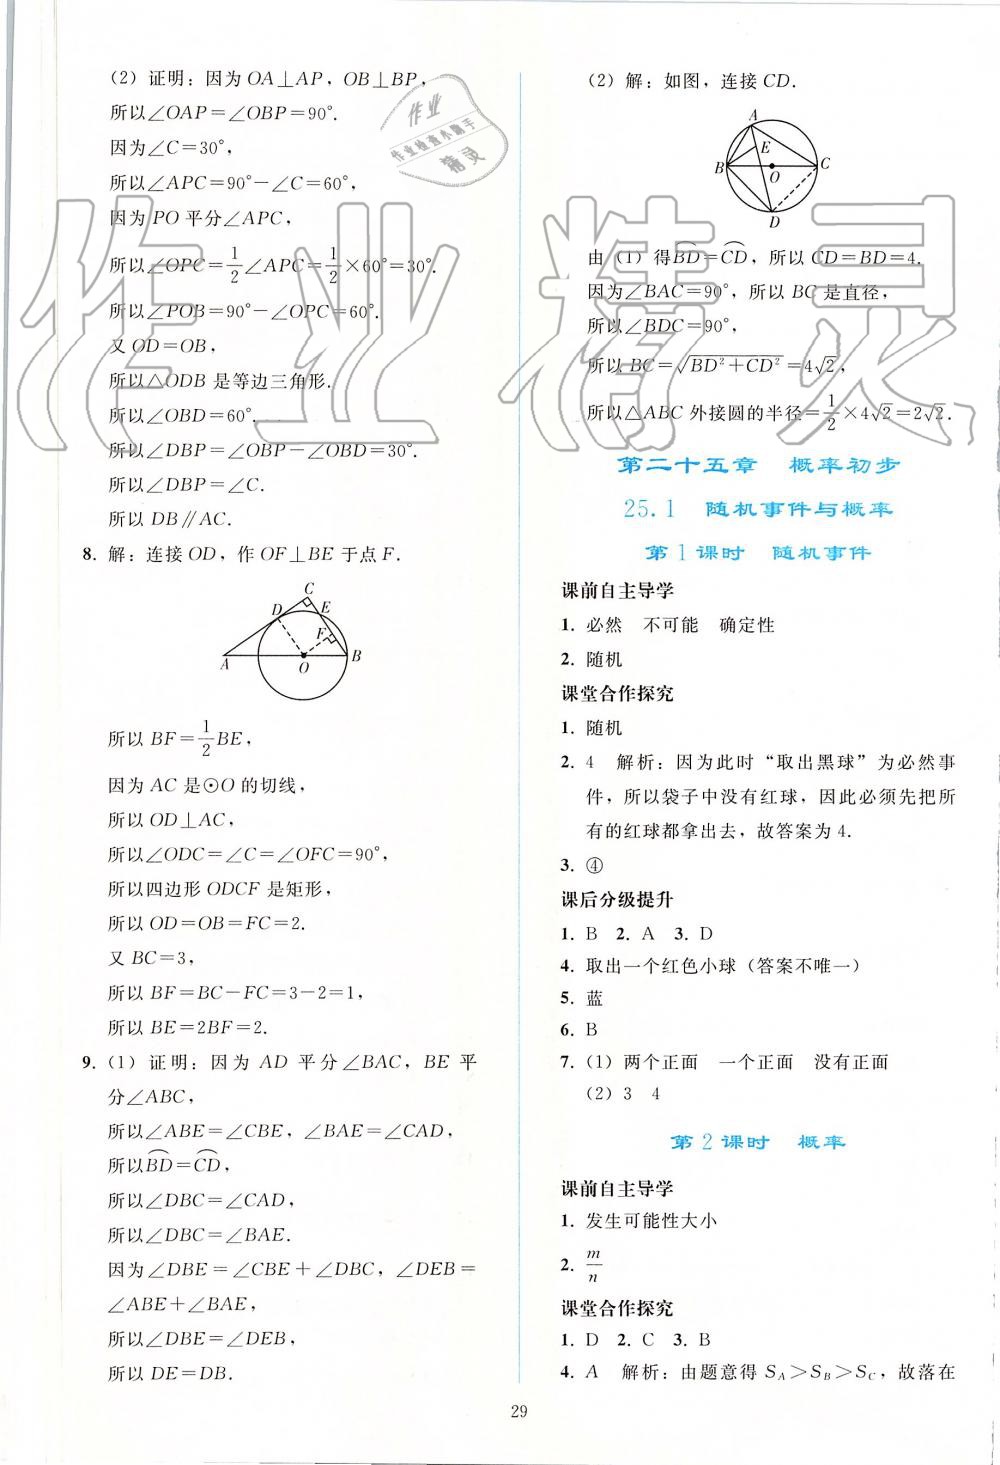 (2) 证明：因为 OA⊥AP，OB⊥BP，
所以∠OAP=∠OBP=90°.
因为∠C=30°，
所以∠APC=90°-∠C=60°，
因为 PO 平分∠APC，
所以∠OPC=1/2∠APC=1/2×60°=30°.
所以∠POB=90°-∠OPC=60°.
又 OD=OB，
所以△ODB 是等边三角形.
所以∠OBD=60°.
所以∠DBP=∠OBP-∠OBD=30°.
所以∠DBP=∠C.
所以 DB∥AC.
8. 解：连接 OD，作 OF⊥BE 于点 F.
C
D E
F
A O B
所以 BF=1/2BE，
因为 AC 是⊙O 的切线，
所以 OD⊥AC，
所以∠ODC=∠C=∠OFC=90°，
所以四边形 ODCF 是矩形，
所以 OD=OB=FC=2.
又 BC=3，
所以 BF=BC-FC=3-2=1，
所以 BE=2BF=2.
9. (1) 证明：因为 AD 平分∠BAC，BE 平
分∠ABC，
所以∠ABE=∠CBE，∠BAE=∠CAD，
所以⌒BD=⌒CD，
所以∠DBC=∠CAD，
所以∠DBC=∠BAE.
因为∠DBE=∠CBE+∠DBC，∠DEB=
∠ABE+∠BAE，
所以∠DBE=∠DEB，
所以 DE=DB.
(2) 解：如图，连接 CD.
A
E
B O C
D
由（1）得⌒BD=⌒CD，所以 CD=BD=4.
因为∠BAC=90°，所以 BC 是直径，
所以∠BDC=90°，
所以 BC=√(BD²+CD²)=4√2，
所以△ABC 外接圆的半径=1/2×4√2=2√2.
第二十五章 概率初步
25.1 随机事件与概率
第1课时 随机事件
课前自主导学
1. 必然 不可能 确定性
2. 随机
课堂合作探究
1. 随机
2. 4 解析：因为此时“取出黑球”为必然事
件，所以袋子中没有红球，因此必须先把所
有的红球都拿出去，故答案为 4.
3. ④
课后分级提升
1. B 2. A 3. D
4. 取出一个红色小球（答案不唯一）
5. 蓝
6. B
7. (1) 两个正面 一个正面 没有正面
(2) 3 4
第2课时 概率
课前自主导学
1. 发生可能性大小
2. m/n
课堂合作探究
1. D 2. C 3. B
4. A 解析：由题意得 S_A>S_B>S_C，故落在
29
作业精灵
作业
作业检查小助手
精灵